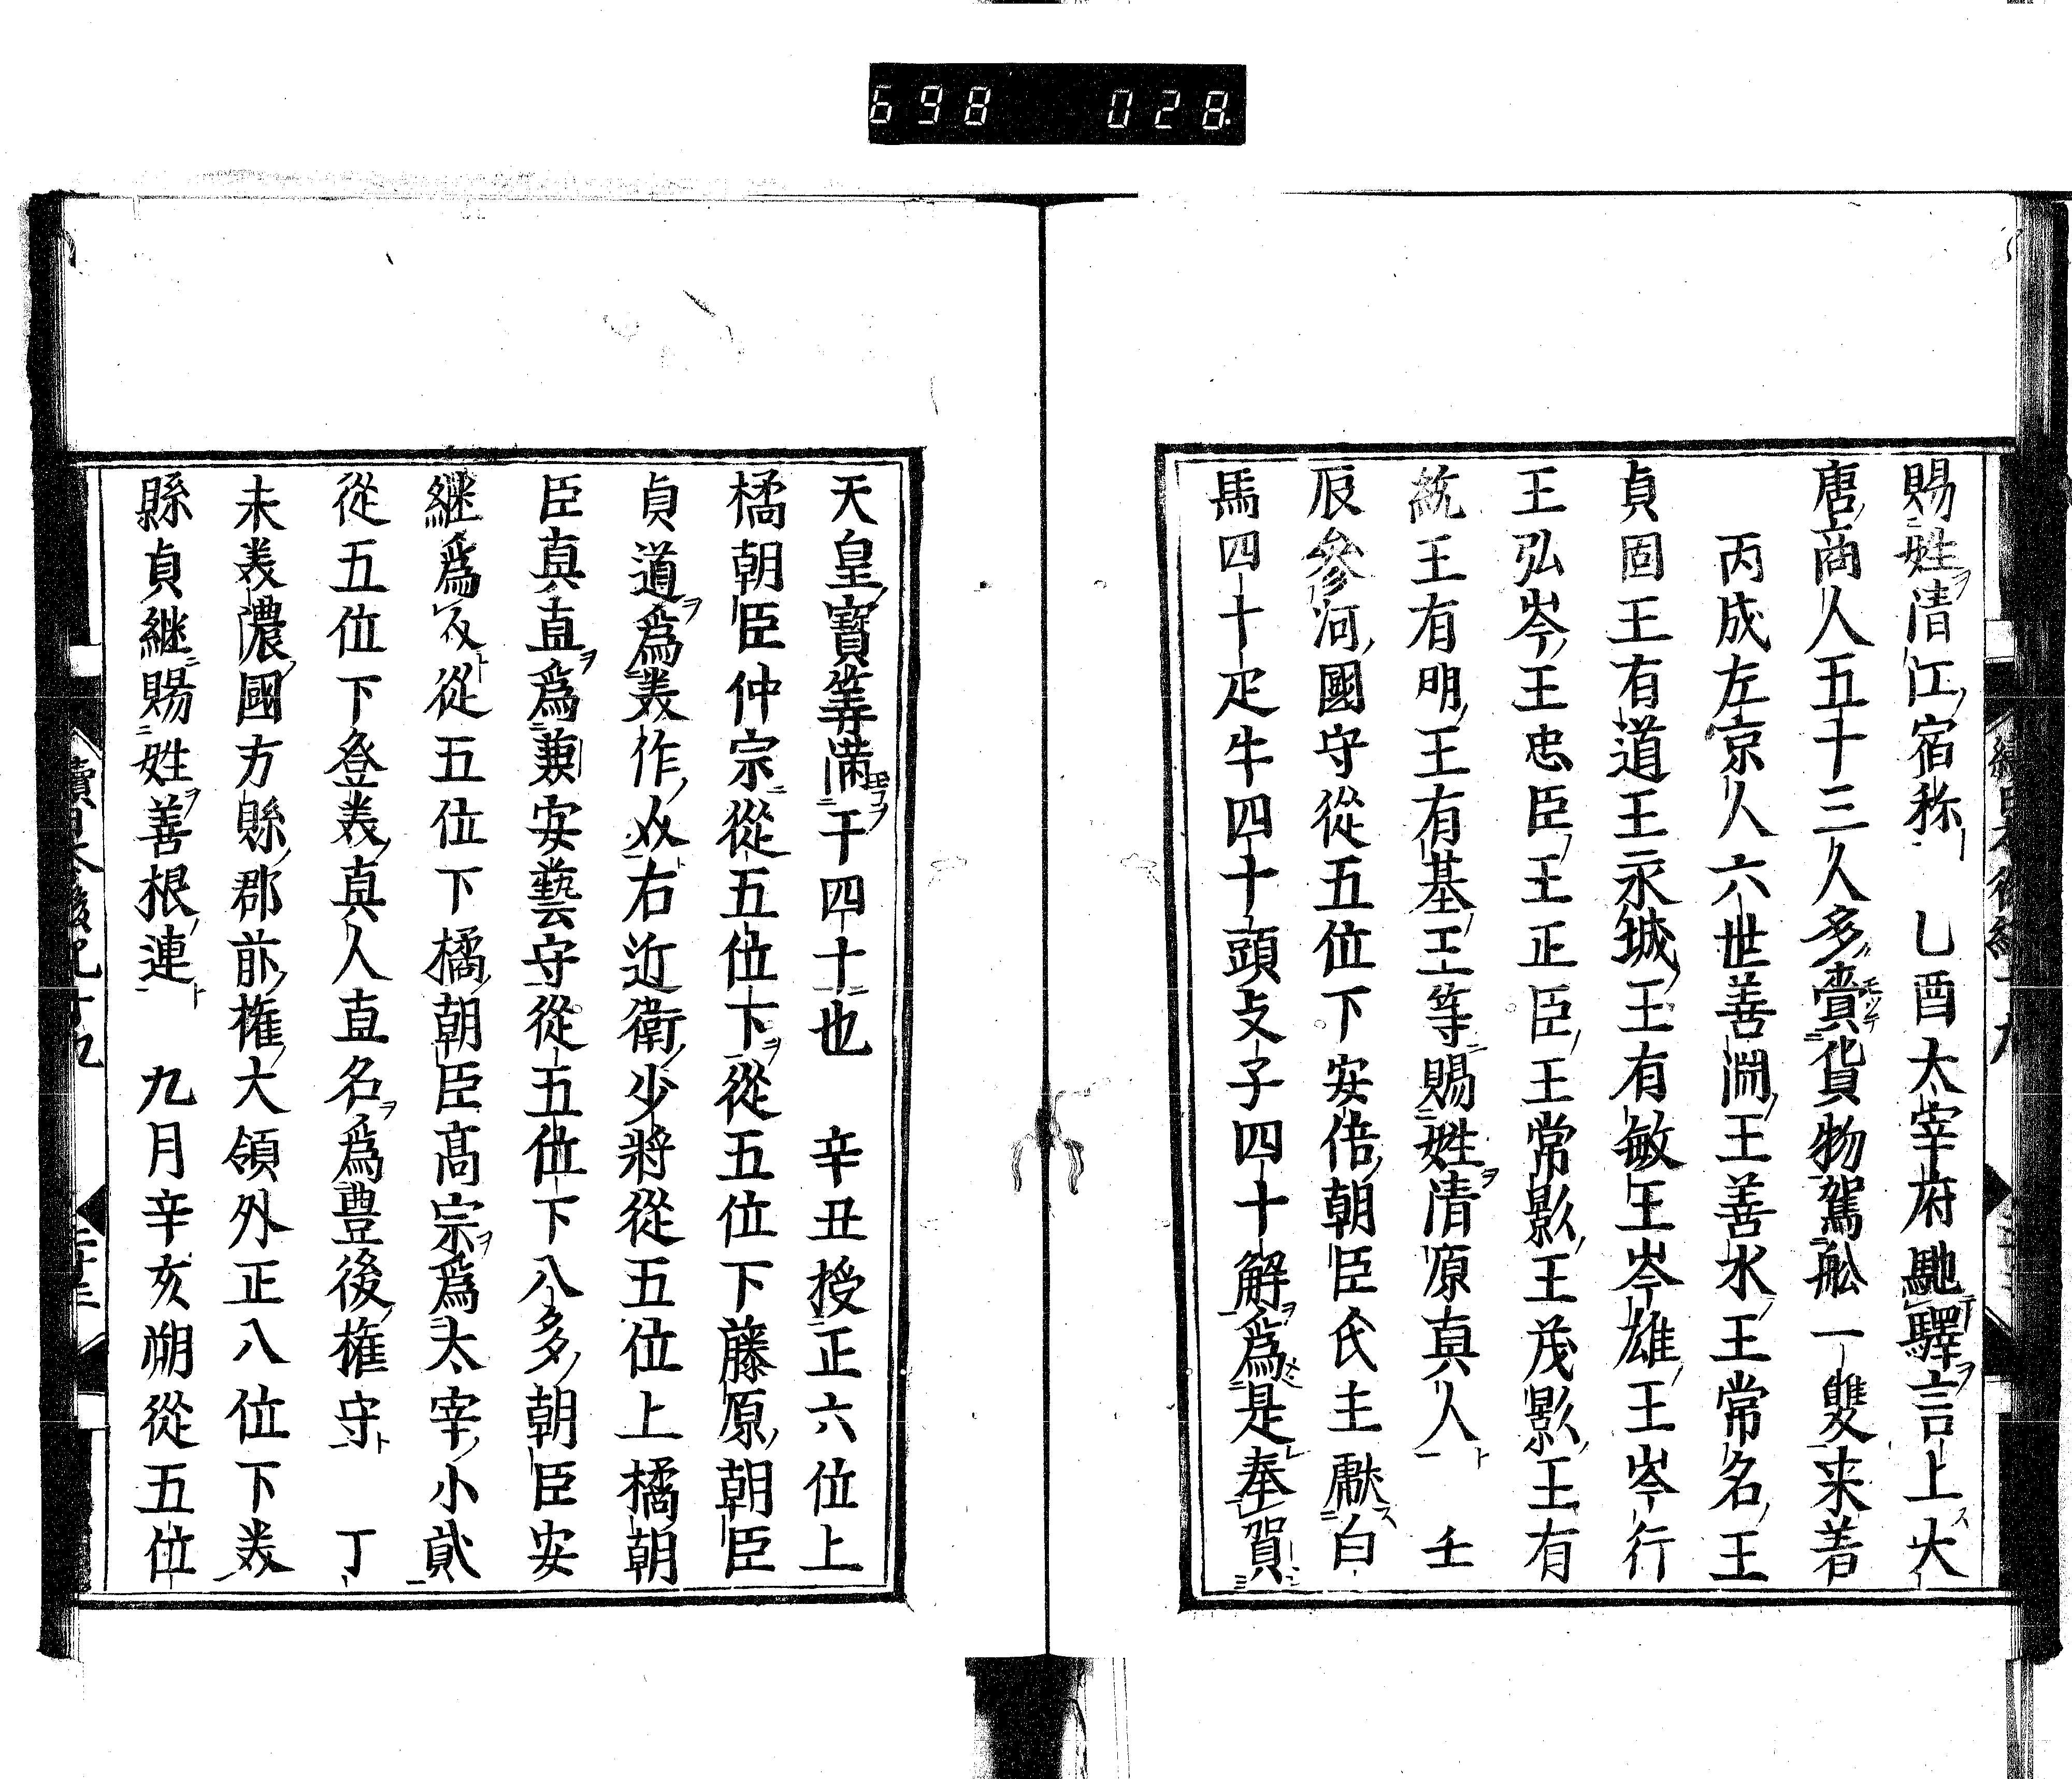 698 028
賜姓清江宿祢 乙酉太宰府馳驛言上大
唐商人五十三人多賫貨物駕舩一雙来着
丙戍左京人六世善淵王善水王常名王
貞固王有道王永城王有敏王岑雄王岑行
王弘岑王忠臣王正臣王常影王茂影王有
統王有明王有基王等賜姓清原真人 壬
辰參河國守從五位下安倍朝臣氏主獻白
馬四十疋牛四十頭攴子四十解爲是奉賀
天皇寶筭滿于四十也 辛丑授正六位上
橘朝臣仲宗從五位下從五位下藤原朝臣
貞道爲羙作㕝右近衛少將從五位上橘朝
臣真直爲兼安藝守從五位下八多朝臣安
継爲㕝從五位下橘朝臣髙宗爲太宰小貳
從五位下登羙真人直名爲豊後權守 丁
未羙濃國方縣郡前權大領外正八位下羙
縣貞継賜姓善根連 九月辛亥朔從五位
續日本後紀十九